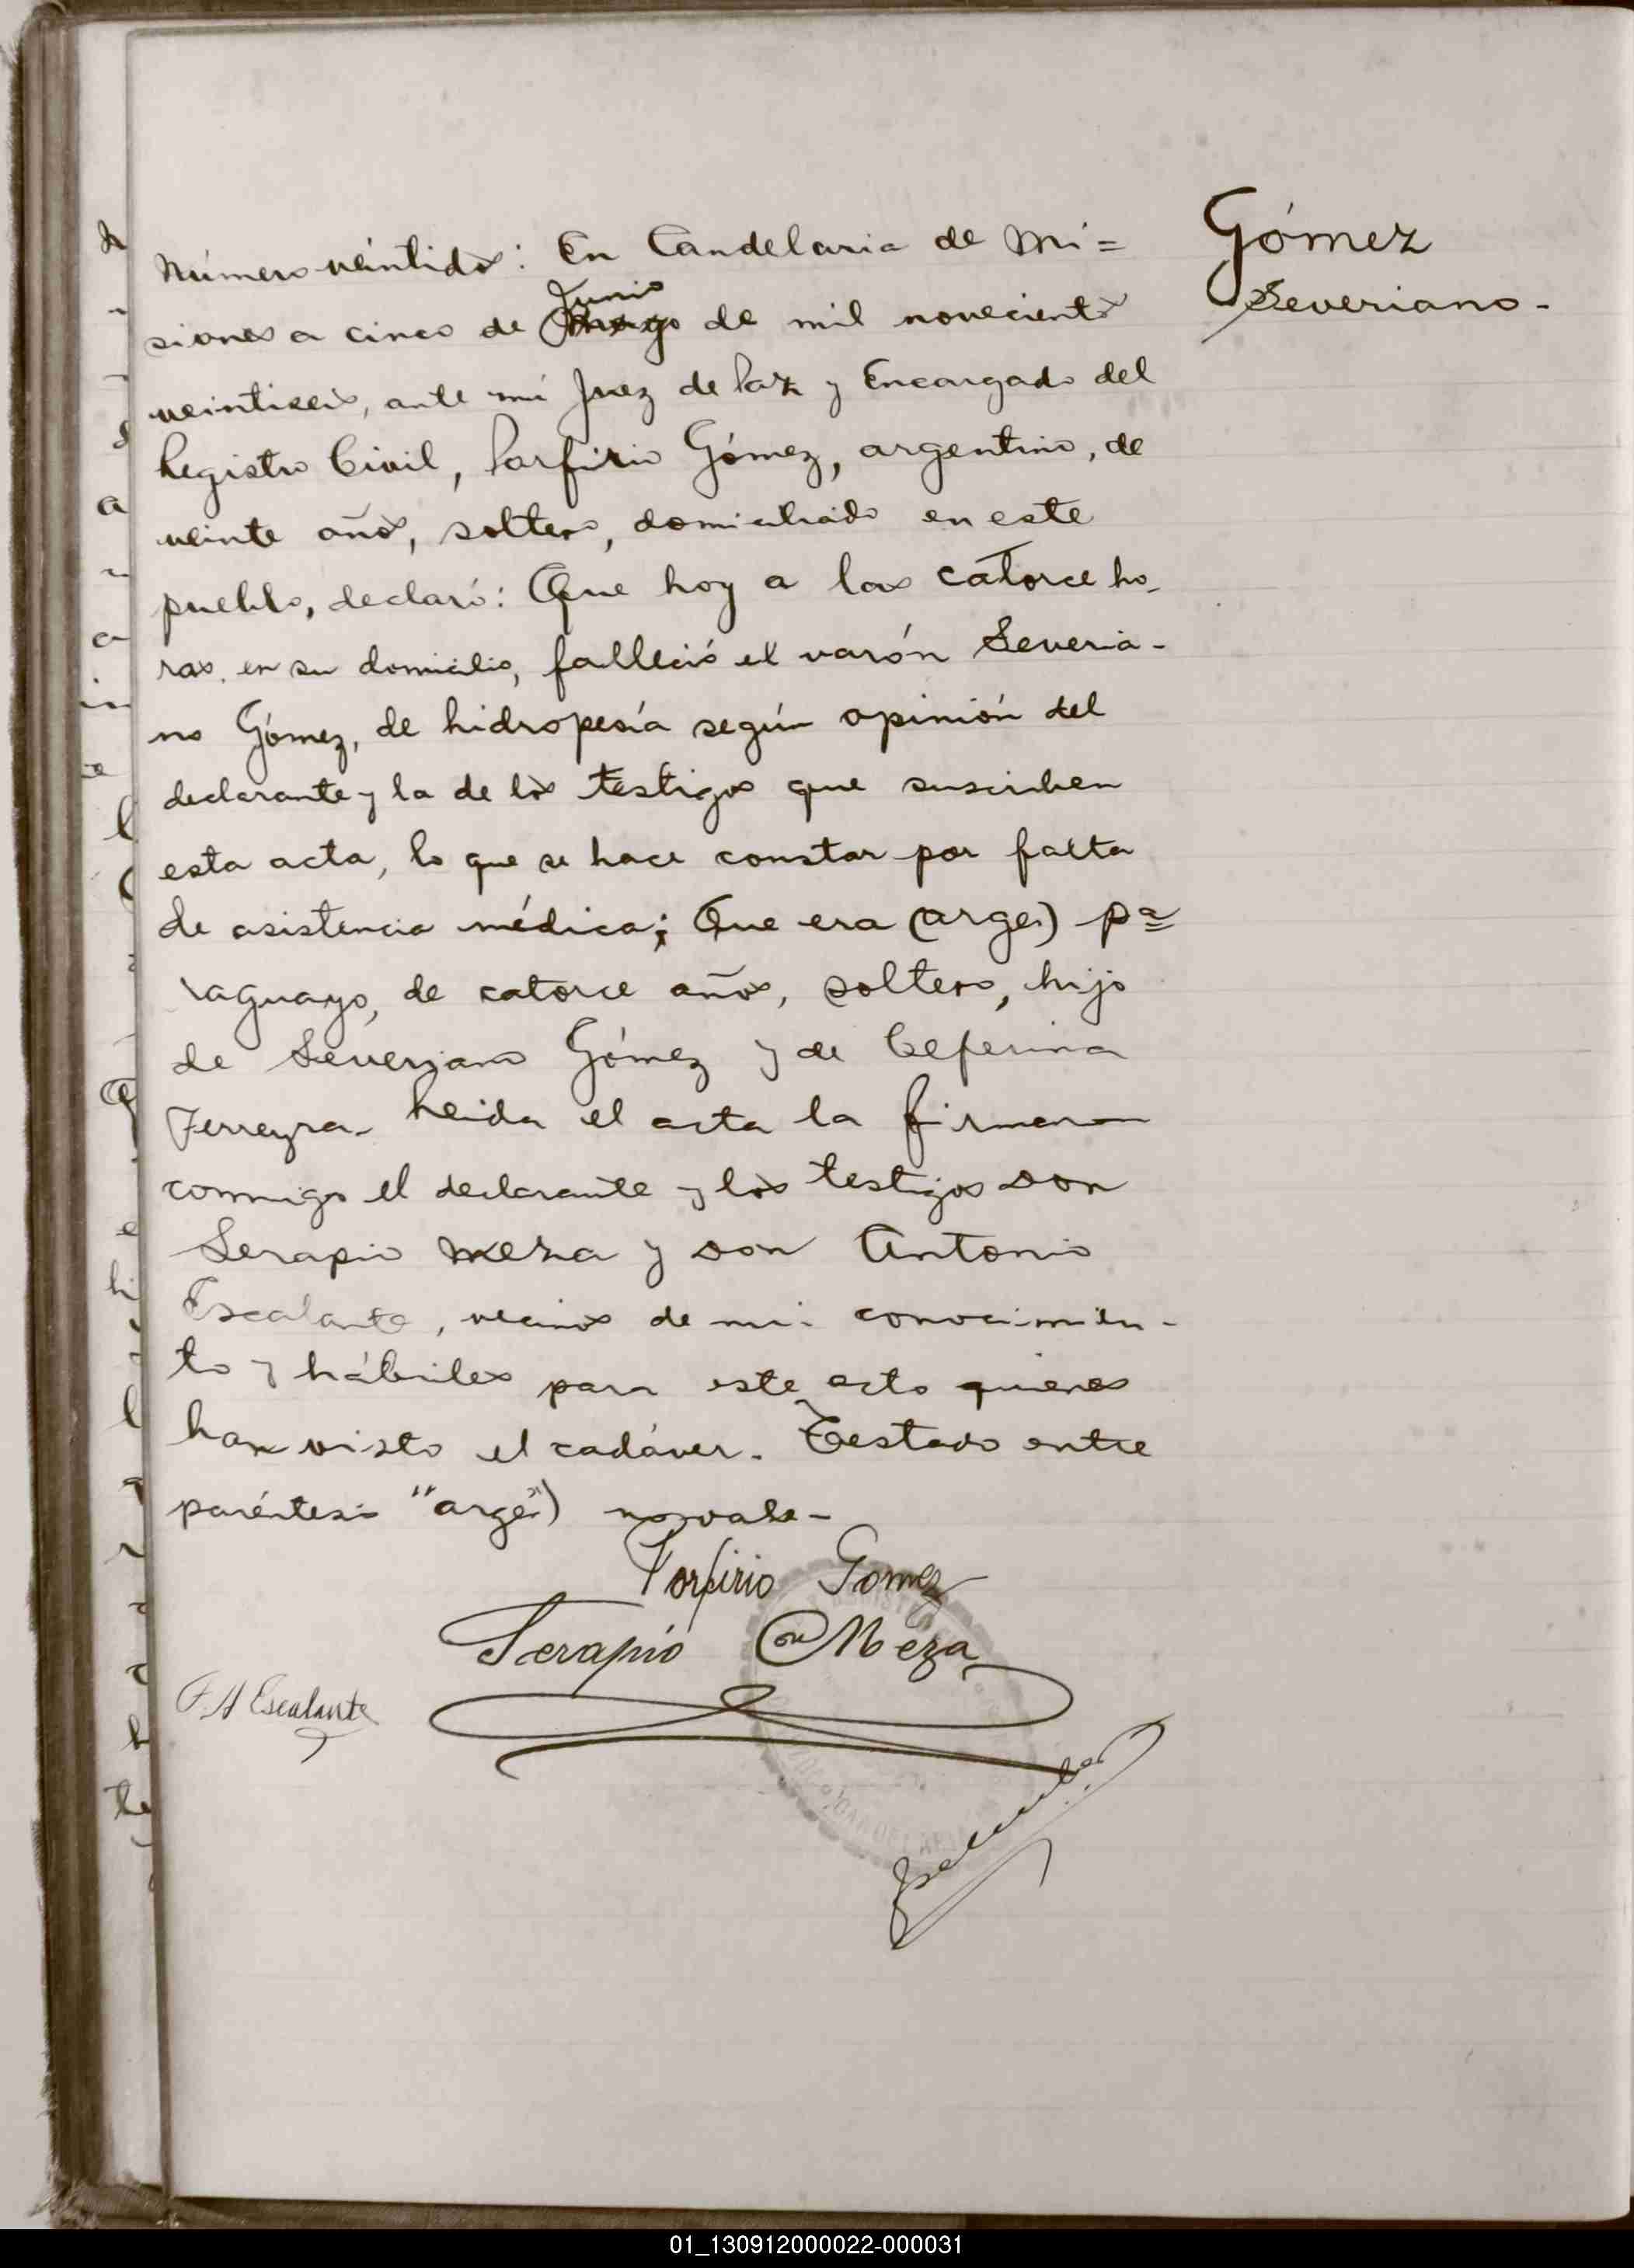 Gómez
Severiano-
Número veintidos: En Candelaria de Mi=
Junio
siones a cinco de Mayo de mil novecientos
veintiseis, ante mí Juez de Paz y Encargado del
Registro Civil, Porfirio Gómez, argentino, de
veinte años, soltero, domiciliado en este
pueblo, declaró: Que hoy a las catorce ho-
ras, en su domicilio, falleció el varón Severia-
no Gómez, de hidropesía según opinión del
declarante y la de los testigos que suscriben
esta acta, lo que se hace constar por falta
de asistencia médica; Que era (arge) pa
raguayo, de catorce años, soltero, hijo
de Severiano Gómez y de Ceferina
Ferreyra- Leida el acta la firmaron
conmigo el declarante y los testigos don
Serapio Meza y don Antonio
Escalante, vecinos de mi conocimien-
to y hábiles para este acto quienes
han visto el cadáver. Testado entre
paréntesis "arge") no vale-
Porfirio Gomez
Serapio Meza
F. A Escalante
01_130912000022-000031